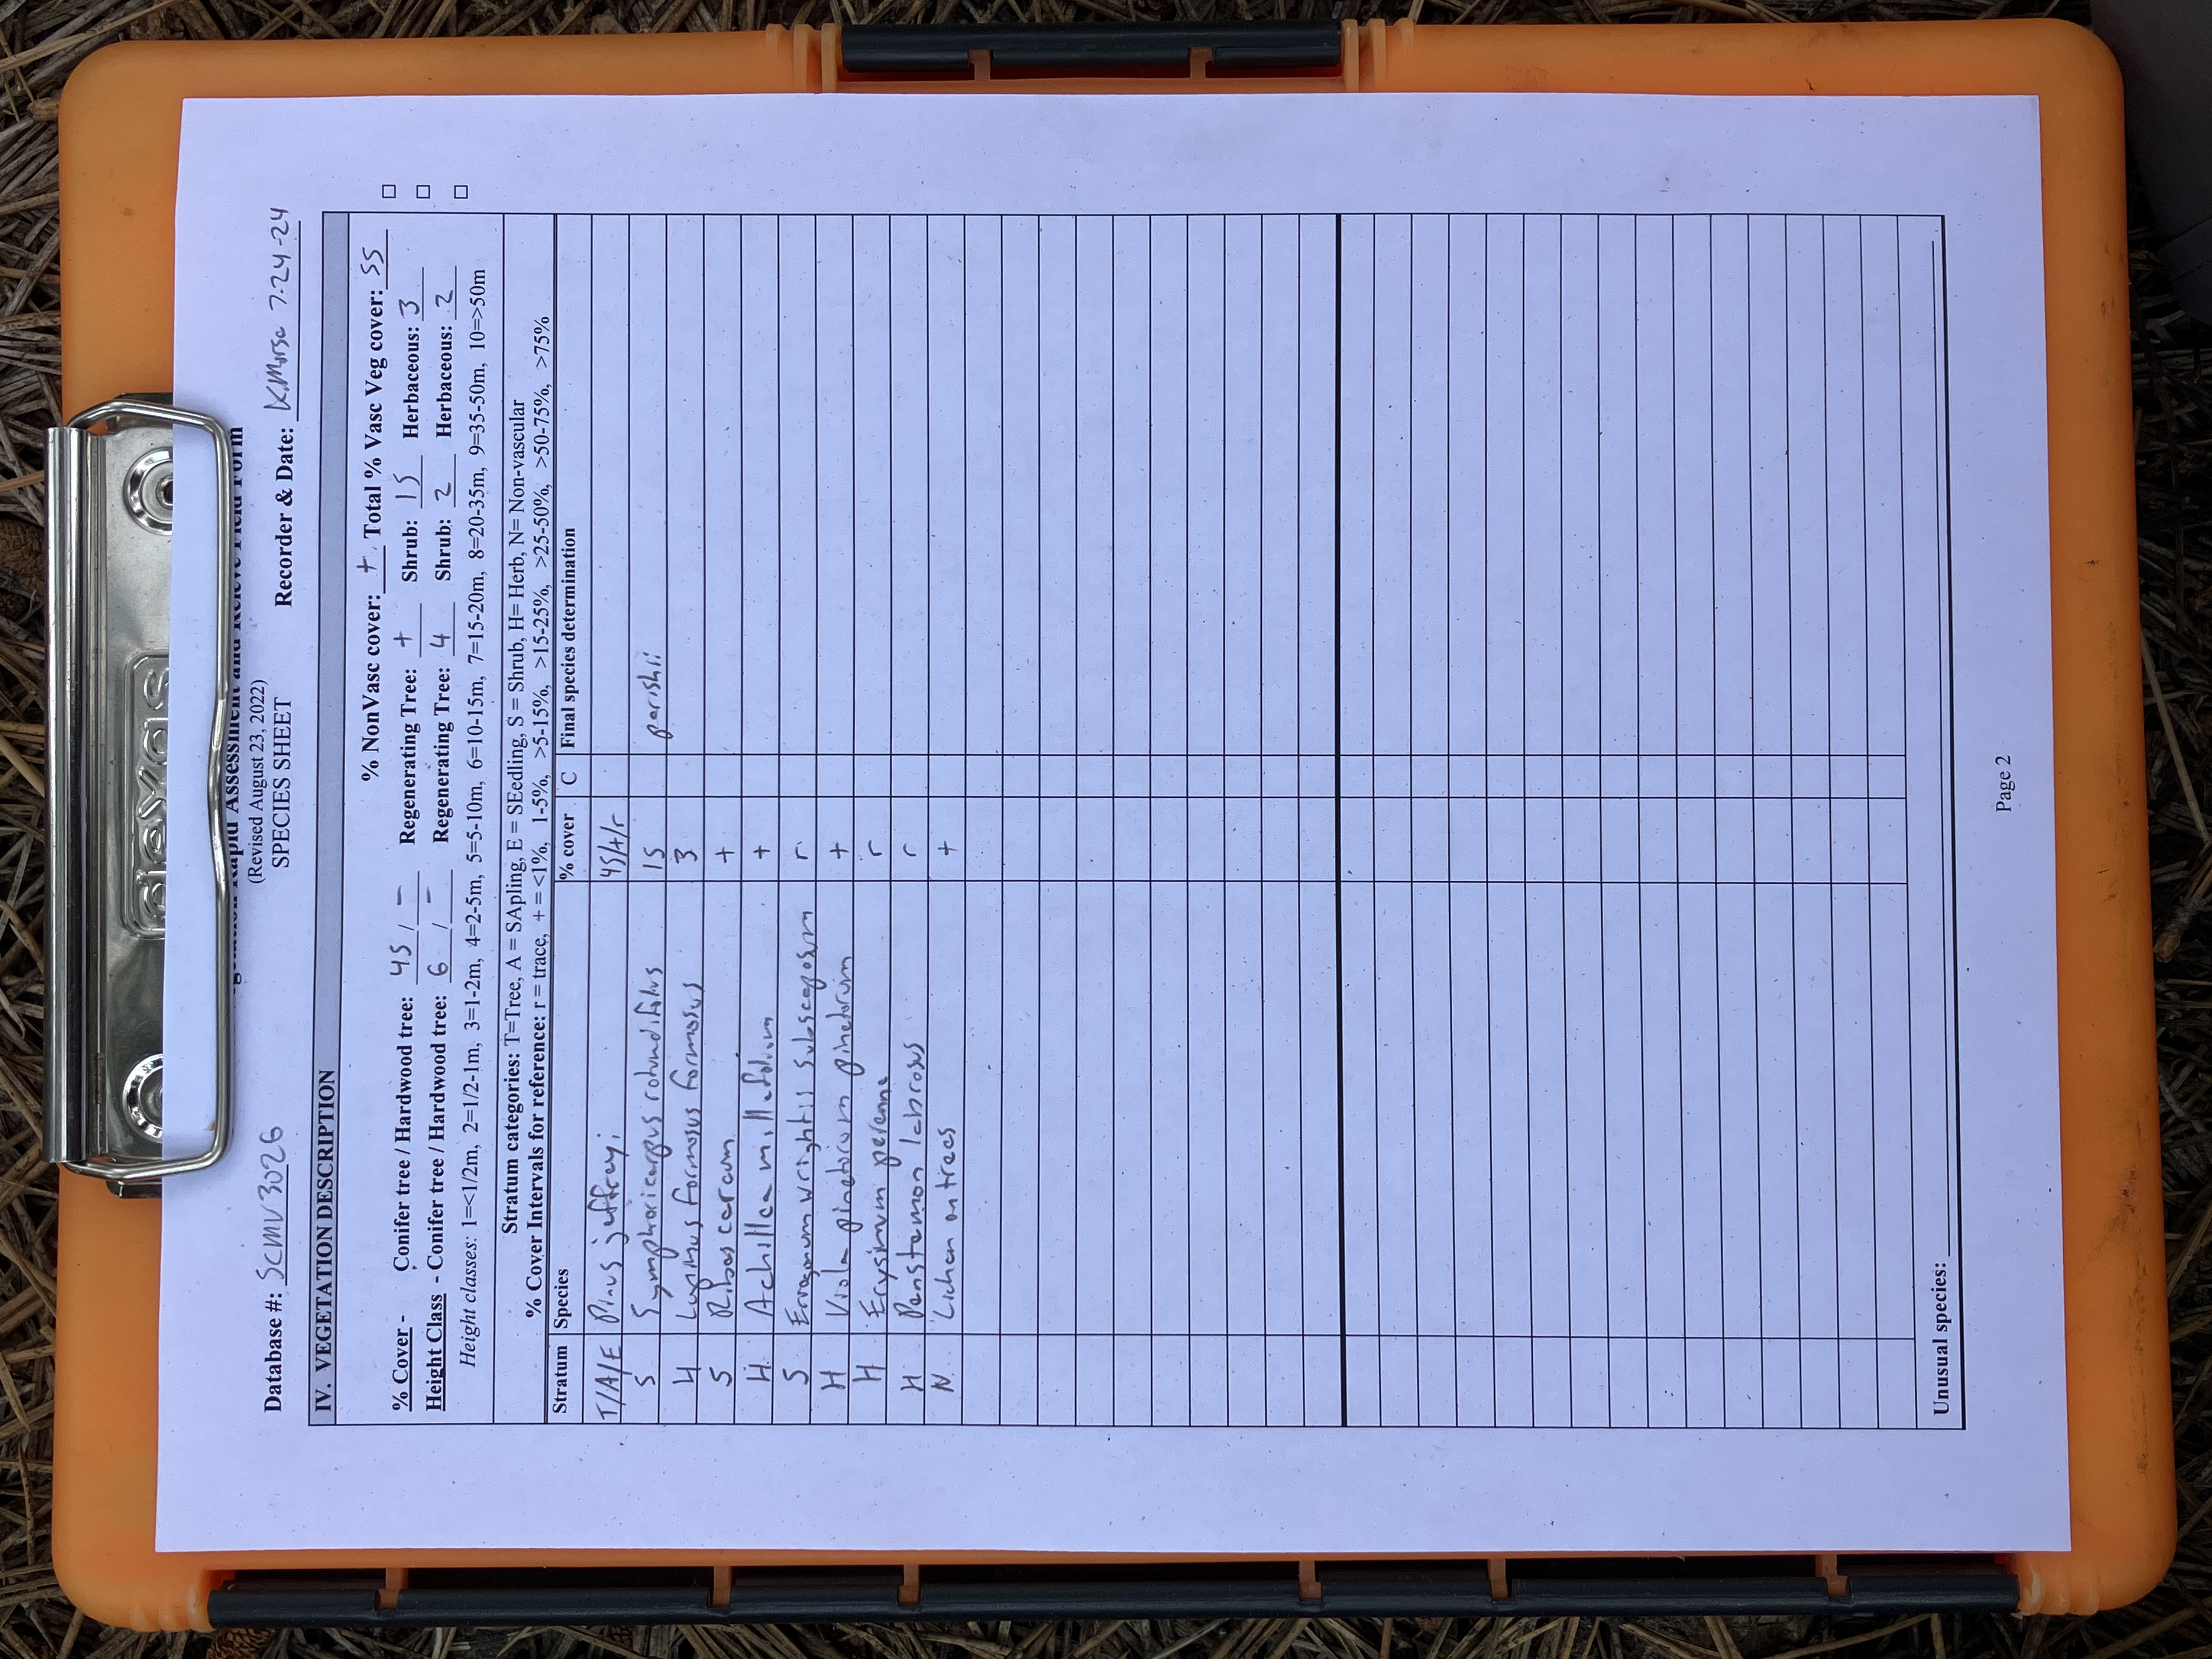 dexas
Vegetation Rapid Assessment and Relevé Field Form
(Revised August 23, 2022)
SPECIES SHEET
Database #: SCMV3026 Recorder & Date: KMorse 7-24-24
IV. VEGETATION DESCRIPTION
% NonVasc cover: + Total % Vasc Veg cover: 55
% Cover - Conifer tree / Hardwood tree: 45 / - Regenerating Tree: + Shrub: 15 Herbaceous: 3
Height Class - Conifer tree / Hardwood tree: 6 / - Regenerating Tree: 4 Shrub: 2 Herbaceous: 2
Height classes: 1=<1/2m, 2=1/2-1m, 3=1-2m, 4=2-5m, 5=5-10m, 6=10-15m, 7=15-20m, 8=20-35m, 9=35-50m, 10=>50m
Stratum categories: T=Tree, A = SApling, E = SEedling, S = Shrub, H= Herb, N= Non-vascular
% Cover Intervals for reference: r = trace, + = <1%, 1-5%, >5-15%, >15-25%, >25-50%, >50-75%, >75%
Stratum Species % cover C Final species determination
T/A/E Pinus jeffreyi 45/+/r
S Symphoricarpus rotundifolius 15 parishii
H Lupinus formosus formosus 3
S Ribes cereum +
H Achillea millefolium +
S Eriogonum wrightii subscaposum r
H Viola pinetorum pinetorum +
H Erysimum perenne r
H Penstemon labrosus r
N Lichen on trees +
Unusual species:
Page 2